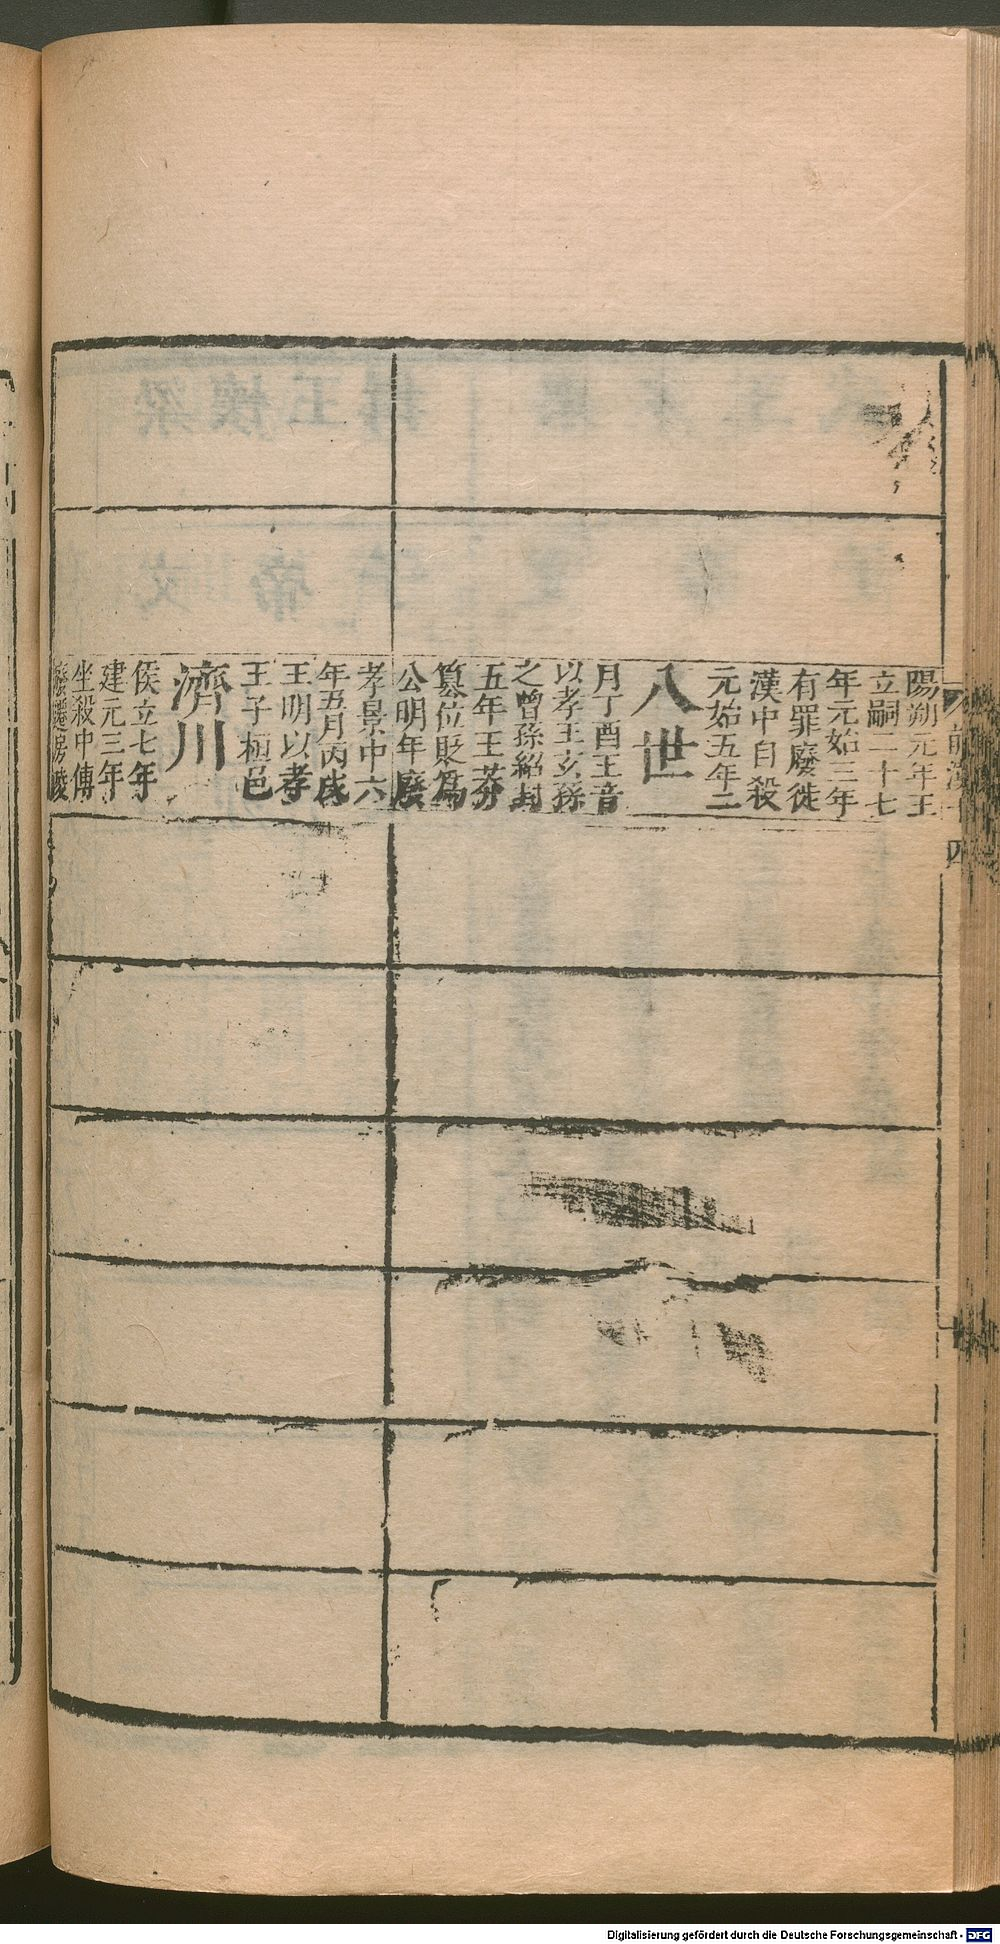 陽朔元年王
立嗣二十七
年元始三年
有罪廢徙
漢中自殺
元始五年二
八世
月丁酉王音
以孝王玄孫
之曾孫紹封
五年王莽
篡位貶爲
公明年廢
孝景中六
年五月丙戌
王明以孝
王子桓邑
濟川
侯立七年
建元三年
坐殺中傅
廢遷房陵
前漢十四
Digitalisierung gefördert durch die Deutsche Forschungsgemeinschaft - DFG